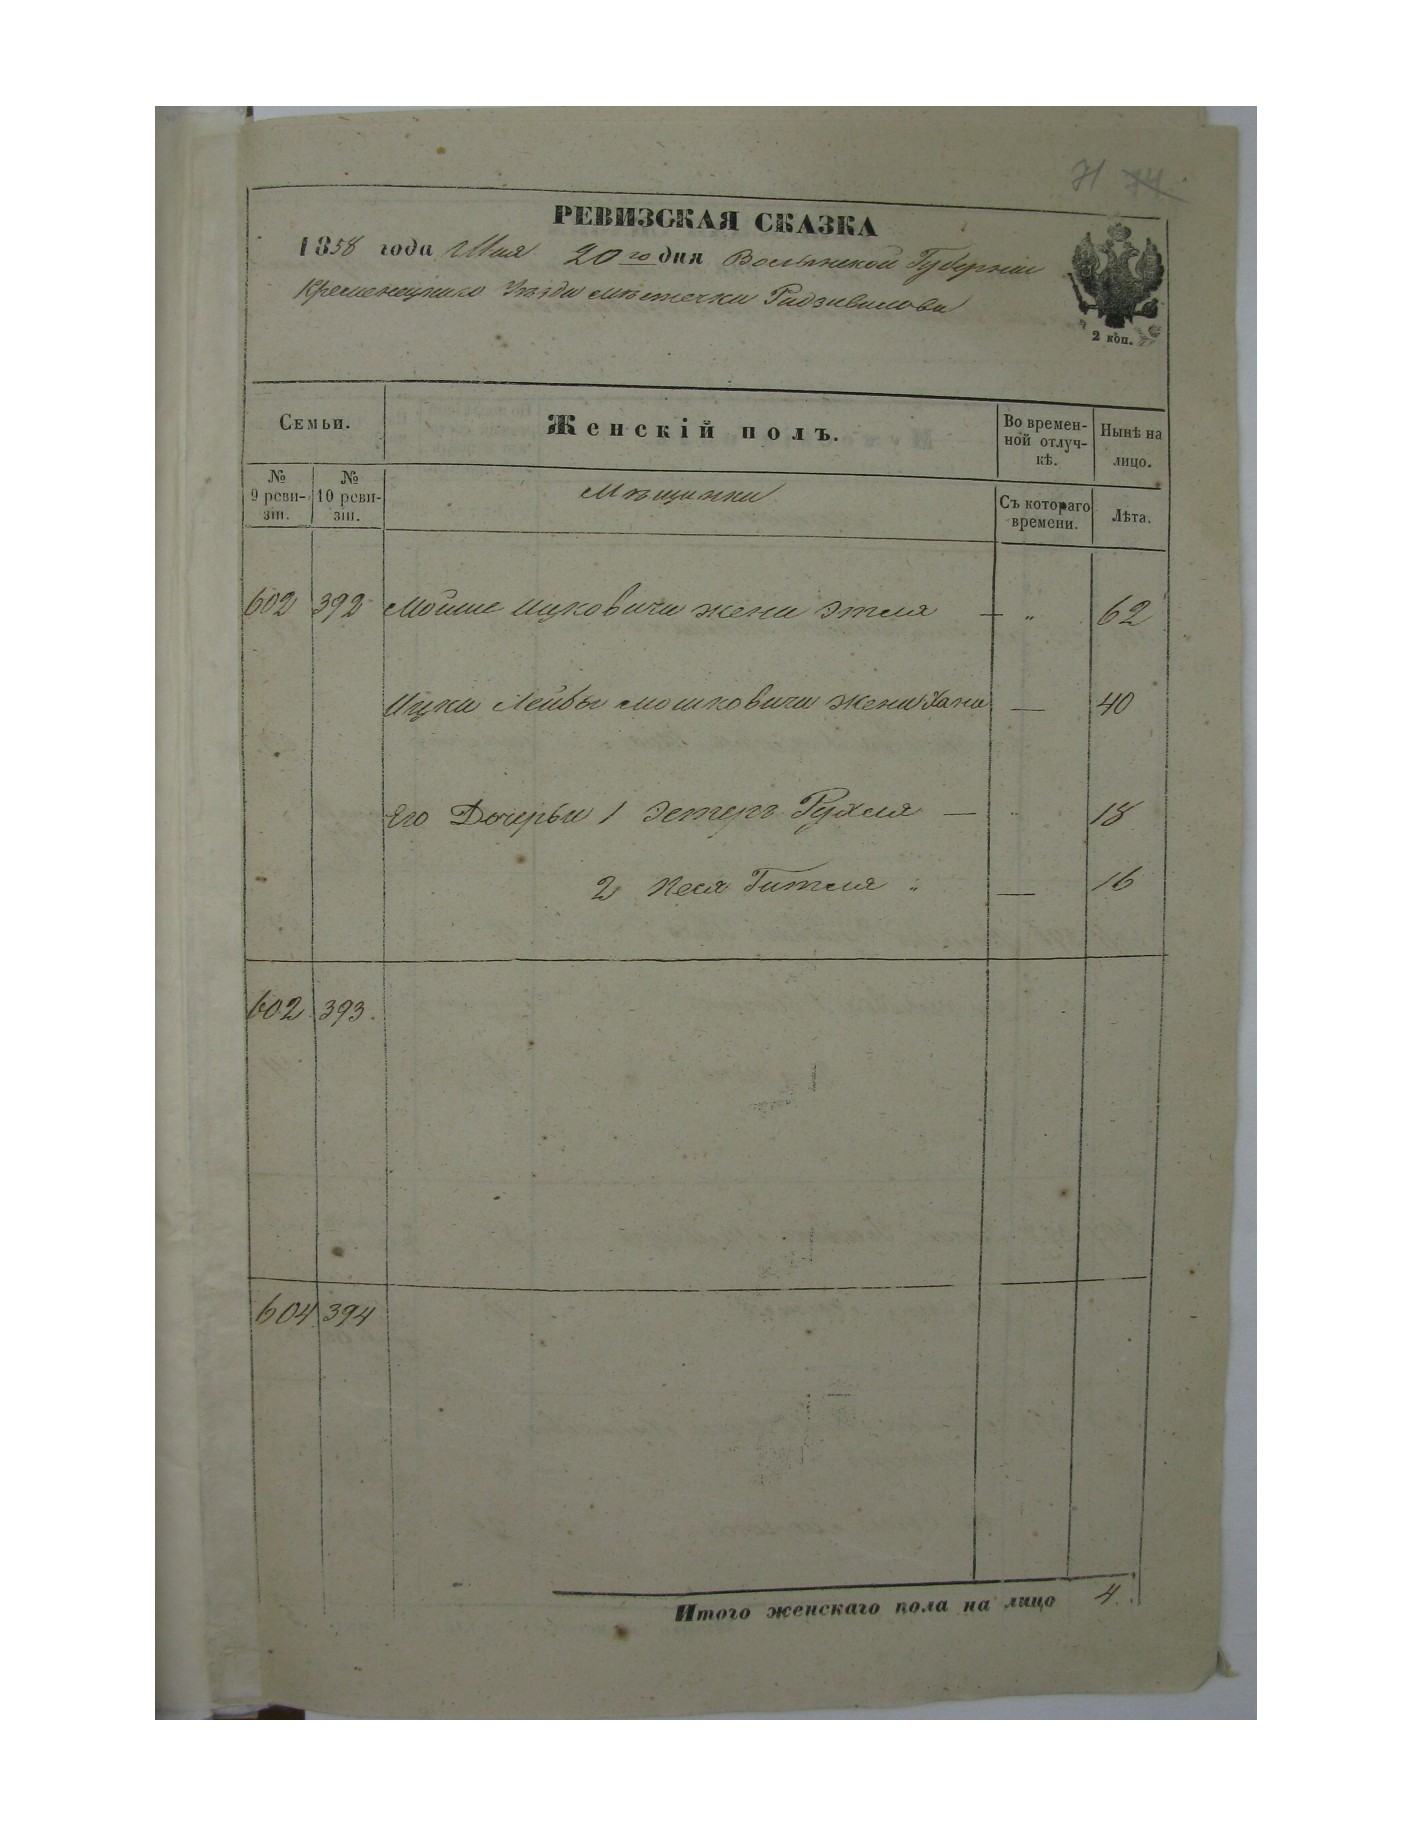 71 74
РЕВИЗСКАЯ СКАЗКА
1858 года Мая 20го дня Волынской Губерніи
Кременецкаго Уѣзда мѣстечка Радзивилова
2 коп.
Семьи.
Женскій полъ.
Во времен-
ной отлуч-
кѣ.
Нынѣ на
лицо.
№
9 реви-
зіи.
№
10 реви-
зіи.
Мѣщанки
Съ котораго
времени.
Лѣта.
602 392 Мойше Ицковича жена Этля — „ 62
Ицки Лейбы Мошковича жена Хана — 40
Его Дочерьи 1 Эстеръ Рухля — 18
2 Кеся Гитля „ — 16
602 393.
604 394
Итого женскаго пола на лицо 4.